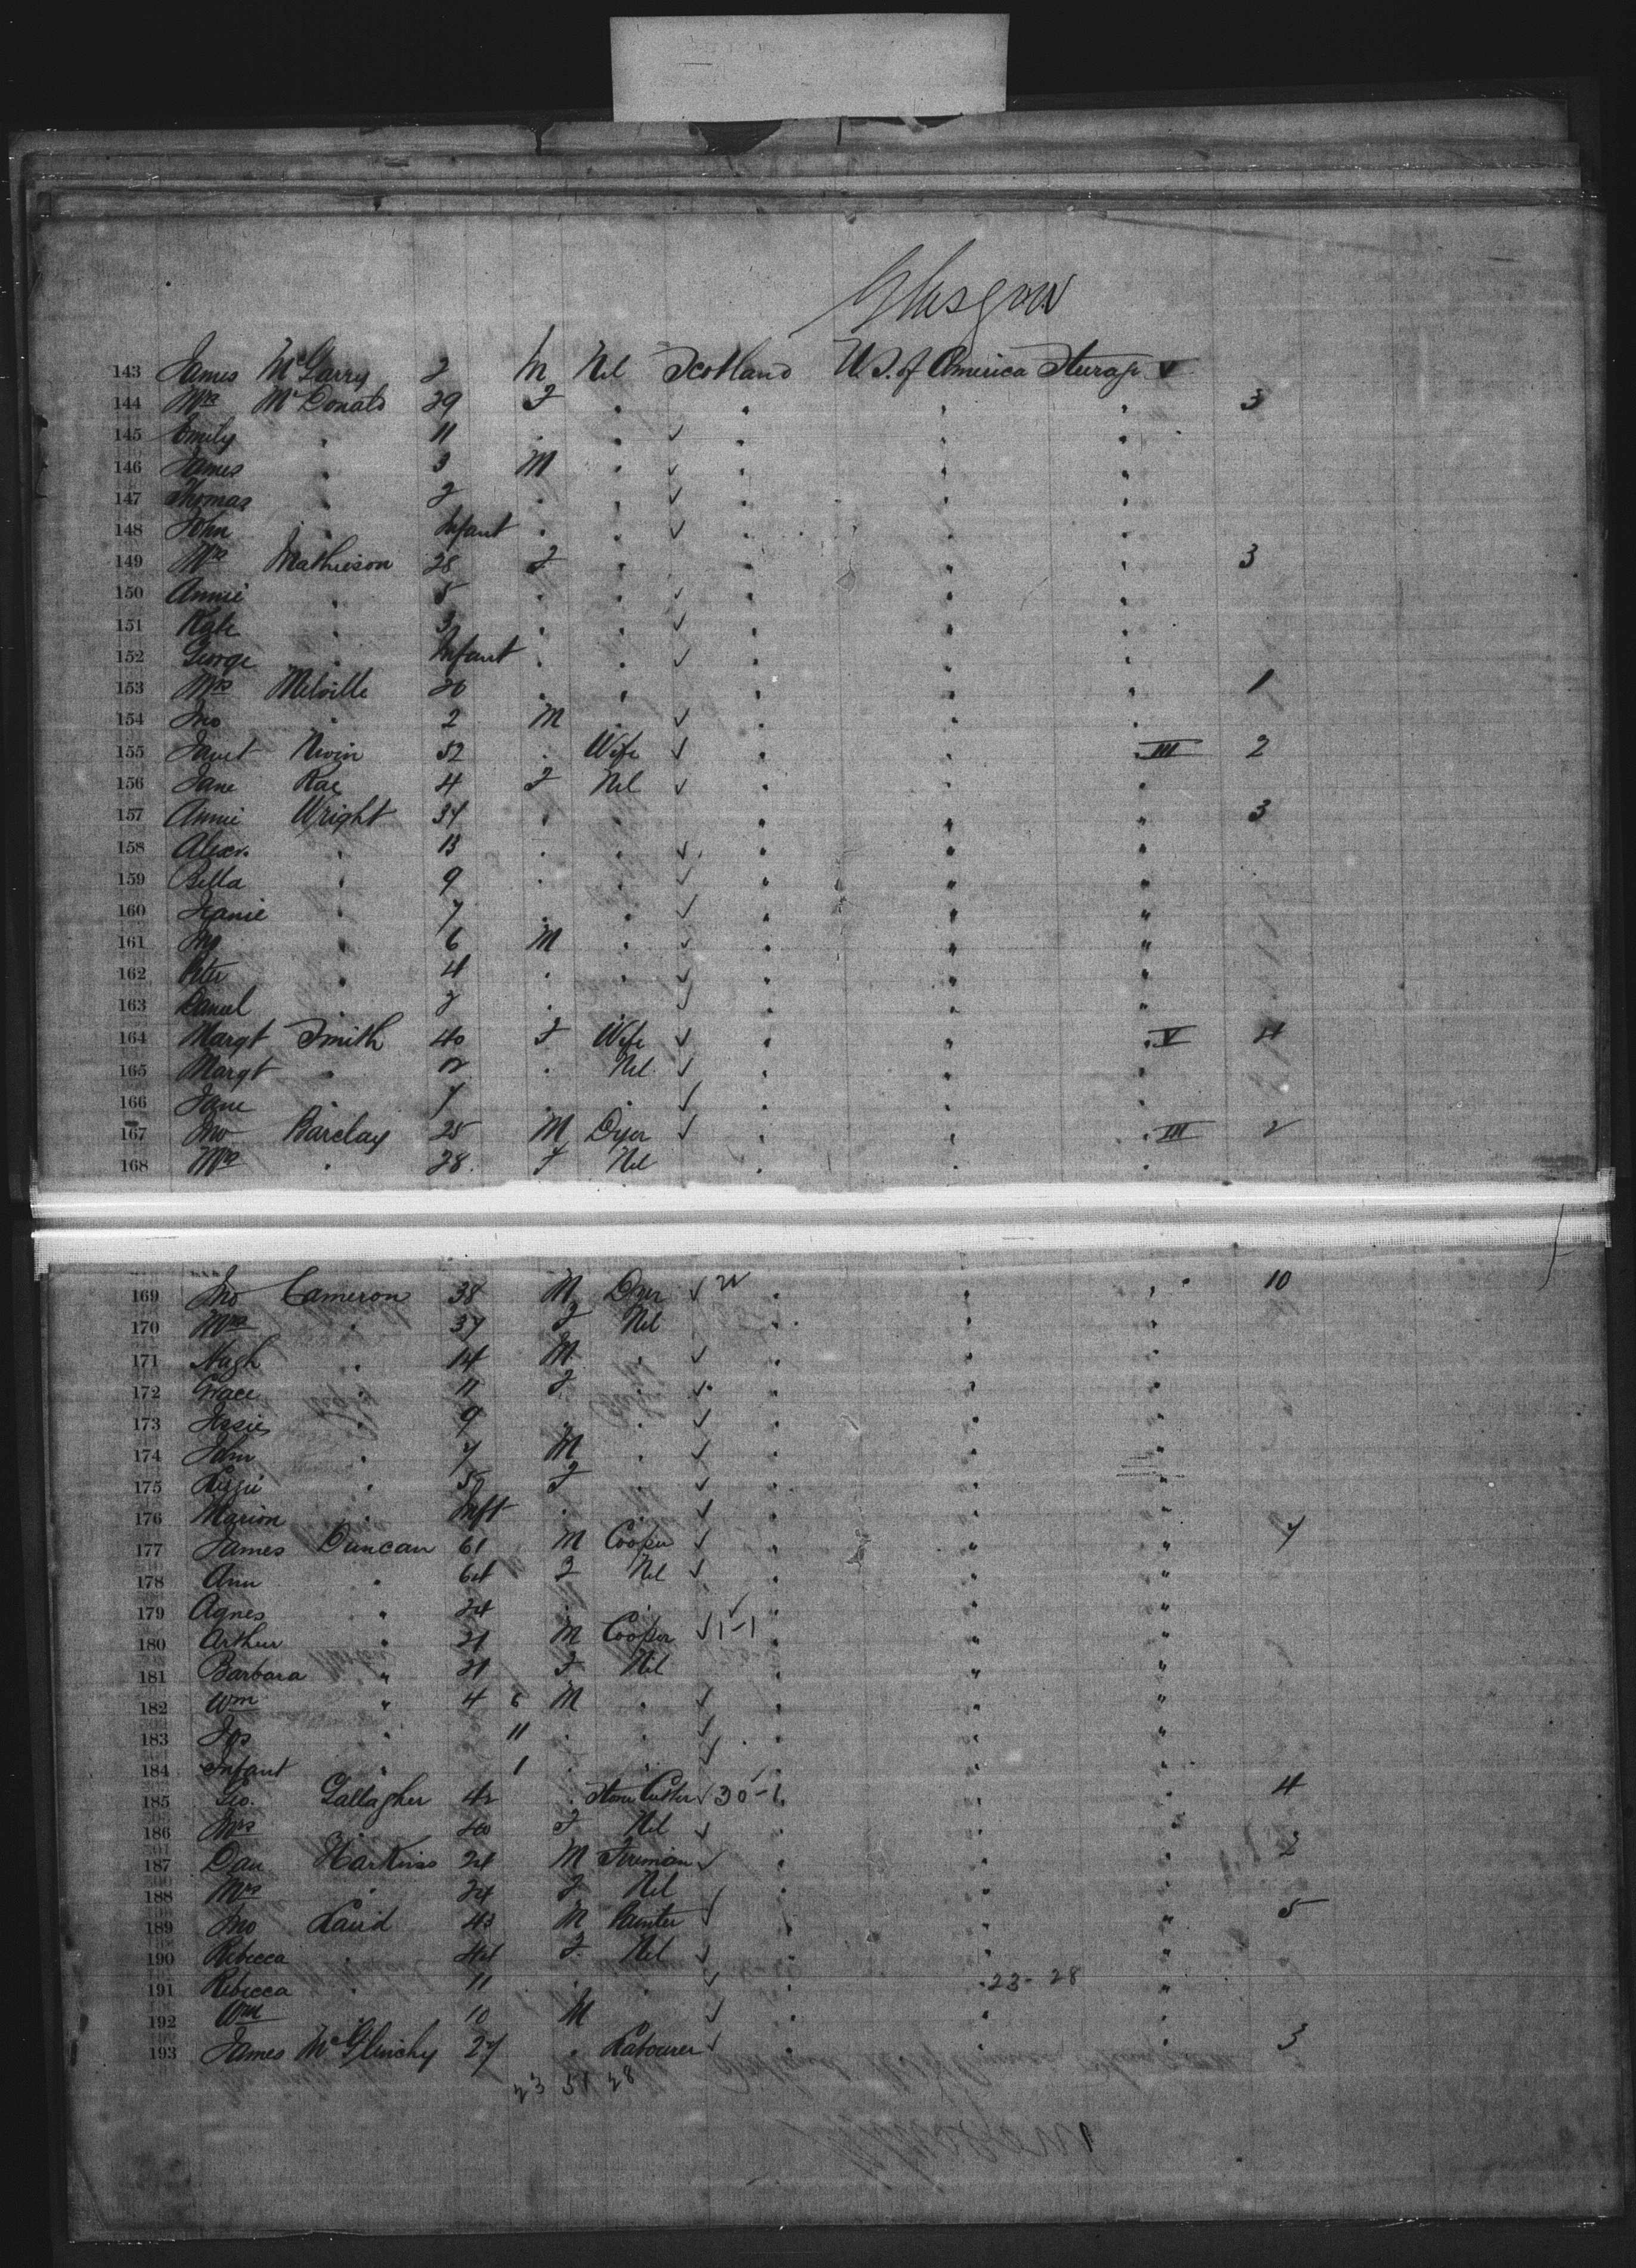 Glasgow
143 James McGarry 2 M Nil Scotland U.S. of America Steerage V
144 Mrs McDonald 29 F . . . . 3
145 Emily . 11 . . ✓ . . .
146 James . 3 M . ✓ . . .
147 Thomas . 2 . . ✓ . . .
148 John . Infant . . ✓ . . .
149 Mrs Mathieson 28 F . . . . 3
150 Annie . 5 . . ✓ . . .
151 Kate . 3 . . ✓ . . .
152 George . Infant . . ✓ . . .
153 Mrs Melville 20 . . . . . 1
154 Jno . 2 M . ✓ . . .
155 Janet Nivin 52 . Wife ✓ . . . III 2
156 Jane Rae 4 F Nil ✓ . . .
157 Annie Wright 34 . . . . " 3
158 Alexr. . 13 . . ✓ . . "
159 Bella . 9 . . ✓ . " "
160 Jeanie . 7 . . ✓ . " "
161 Jno . 6 M . ✓ . " "
162 Peter . 4 . . ✓ . . "
163 Daniel . 2 . . ✓ . . "
164 Margt Smith 40 F Wife ✓ . . . V 4
165 Margt . 12 . Nil ✓ . . .
166 Jane . 7 . . ✓ . . .
167 Jno Barclay 25 M Dyer ✓ . . . III 2
168 Mrs . 28 F Nil . . .
169 Jno Cameron 38 M Dyer ✓ . . . 10
170 Mrs . 37 F Nil . . .
171 Hugh . 14 M . ✓ . . .
172 Grace . 11 F . ✓ . . .
173 Jessie . 9 . . ✓ . . "
174 John . 7 M . ✓ . . "
175 Lizzie . 5 F . ✓ . . "
176 Marion . Inft . . ✓ . " "
177 James Duncan 61 M Cooper ✓ . " " 7
178 Ann . 64 F Nil ✓ . " "
179 Agnes " 24 . . ✓ . " "
180 Arthur " 21 M Cooper ✓ 1-1 . " "
181 Barbara " 21 F Nil . " "
182 Wm " 4 6 M . ✓ . " "
183 Jas . 11 . . ✓ . . "
184 Infant . 1 . . ✓ . . .
185 Geo. Gallagher 42 . Stone Cutter ✓ 30-1 . . . 4
186 Mrs . 40 F Nil ✓ . . .
187 Dan Harkins 24 M Fireman ✓ . . . 2
188 Mrs . 24 F Nil . . "
189 Jno Laird 43 M Painter ✓ . . " 5
190 Rebecca . 44 F Nil ✓ . . "
191 Rebecca . 11 . . ✓ . 23-28 "
192 Wm . 10 M ✓ . . .
193 James McGlinchy 27 . Labourer ✓ . . . 3
23 51 28